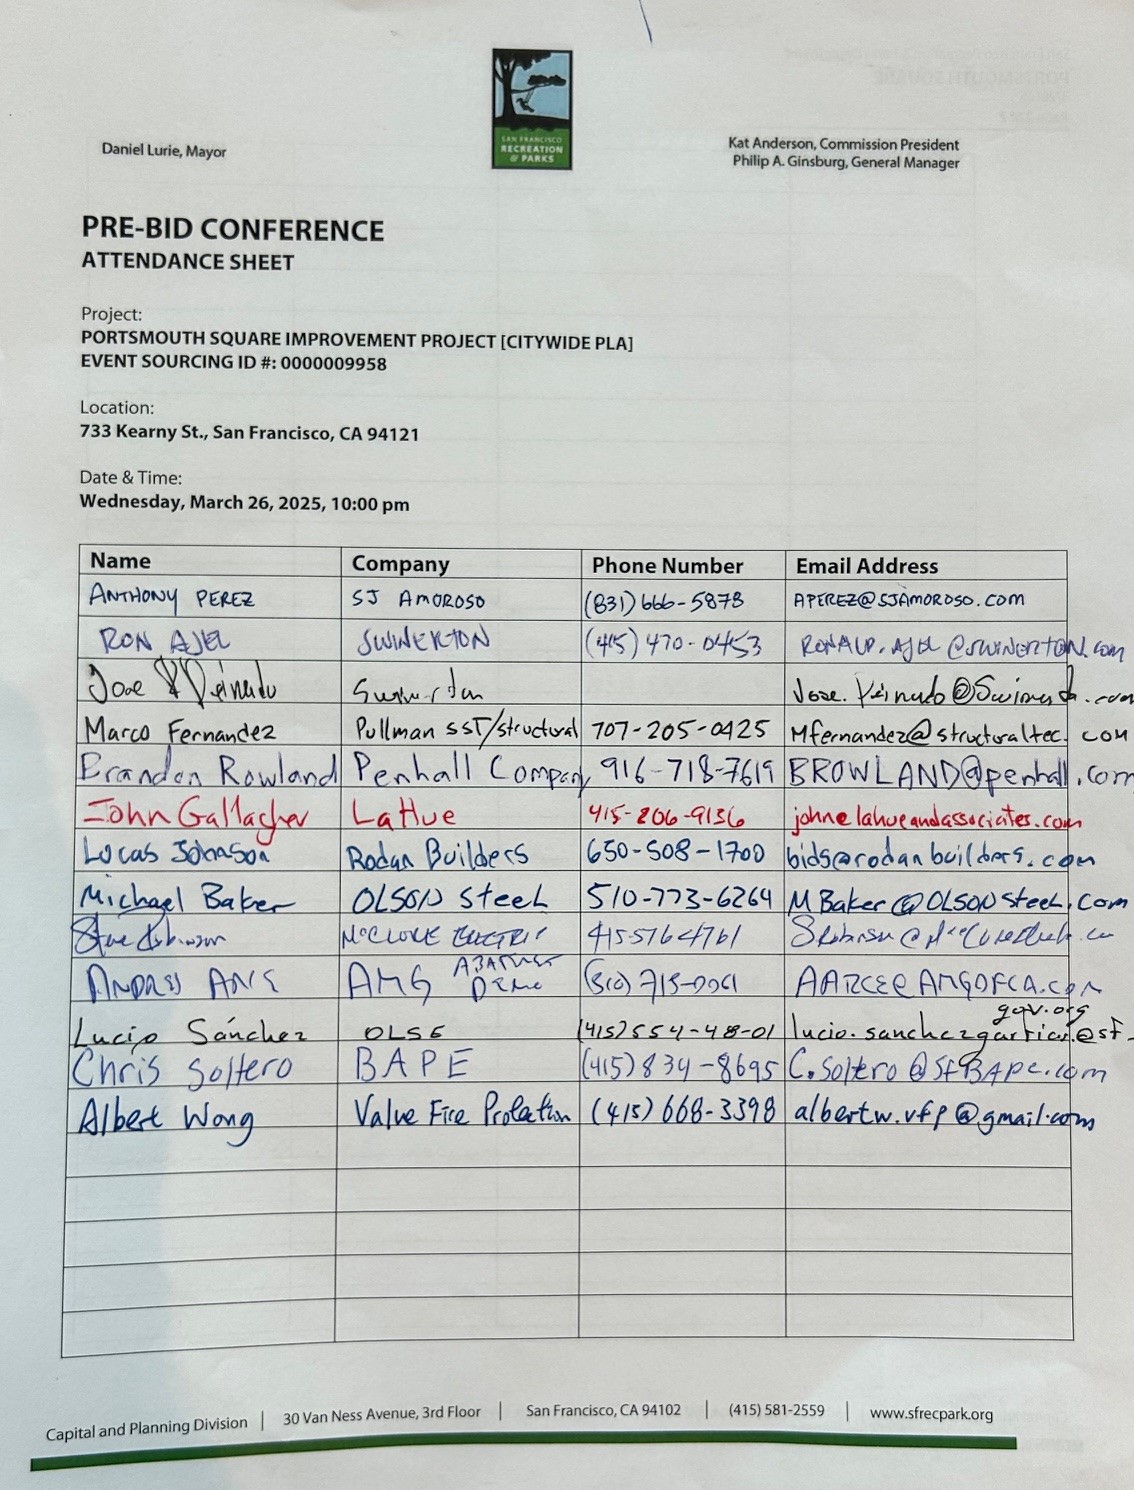 SAN FRANCISCO
RECREATION
& PARKS
Daniel Lurie, Mayor
Kat Anderson, Commission President
Philip A. Ginsburg, General Manager
PRE-BID CONFERENCE
ATTENDANCE SHEET
Project:
PORTSMOUTH SQUARE IMPROVEMENT PROJECT [CITYWIDE PLA]
EVENT SOURCING ID #: 0000009958
Location:
733 Kearny St., San Francisco, CA 94121
Date & Time:
Wednesday, March 26, 2025, 10:00 pm
Name Company Phone Number Email Address
ANTHONY PEREZ SJ AMOROSO (831) 666-5878 APEREZ@SJAMOROSO.COM
RON AJEL SWINERTON (415) 470-0453 RONALD.AJEL@SWINERTON.com
Jose Peinado
Marco Fernandez Pullman SST/structural 707-205-0425 Mfernandez@structuraltec.com
Brandon Rowland Penhall Company 916-718-7619 BROWLAND@penhall.com
John Gallagher LaHue 415-806-9136 johnelahueandassociates.com
Lucas Johnson Rodan Builders 650-508-1700 bids@rodanbuilders.com
Michael Baker OLSON Steel 510-773-6264 MBaker@OLSONSteel.com
McCLURE ELECTRIC
AMG ABATEMENT
DEMO
gov.org
Lucio Sánchez OLSE (415) 554-48-01
Chris Soltero BAPE (415) 834-8695 C.Soltero@SFBAPE.com
Albert Wong Value Fire Protection (415) 668-3398 albertw.vfp@gmail.com
Capital and Planning Division | 30 Van Ness Avenue, 3rd Floor | San Francisco, CA 94102 | (415) 581-2559 | www.sfrecpark.org